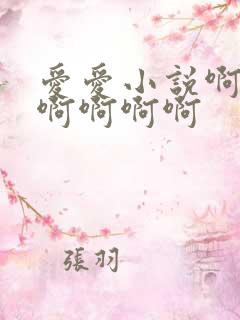 愛愛小說啊
啊啊啊啊
張羽